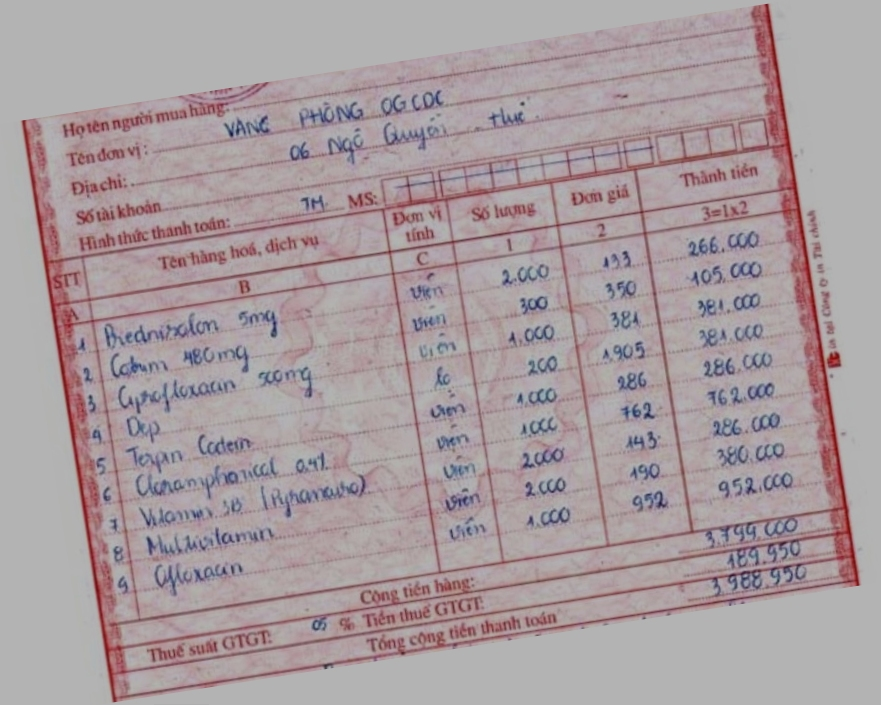 Họ tên người mua hàng:
Tên đơn vị: VĂNG PHÒNG OGCDC
Địa chỉ: 06 Ngô Quyền Huế
Số tài khoản
Hình thức thanh toán: TM MS:
STT Tên hàng hoá, dịch vụ Đơn vị tính Số lượng Đơn giá Thành tiền
A B C 1 2 3=1x2
1 Prednisolon 5mg viên 2.000 133 266.000
2 480mg viên 300 350 105.000
3 Ciprofloxacin 500mg viên 1.000 381 381.000
4 Dep lo 200 1.905 381.000
5 Terpin Codein viên 1.000 286 286.000
6 0.4% viên 1000 762 762.000
7 Vitamin 3B viên 2000 143 286.000
8 Multivitamin viên 2.000 190 380.000
9 Ofloxacin viên 1.000 952 952.000
Cộng tiền hàng: 3.799.000
Thuế suất GTGT: 05 % Tiền thuế GTGT: 189.950
Tổng cộng tiền thanh toán 3.988.950
in tại Công ty in Tài chính